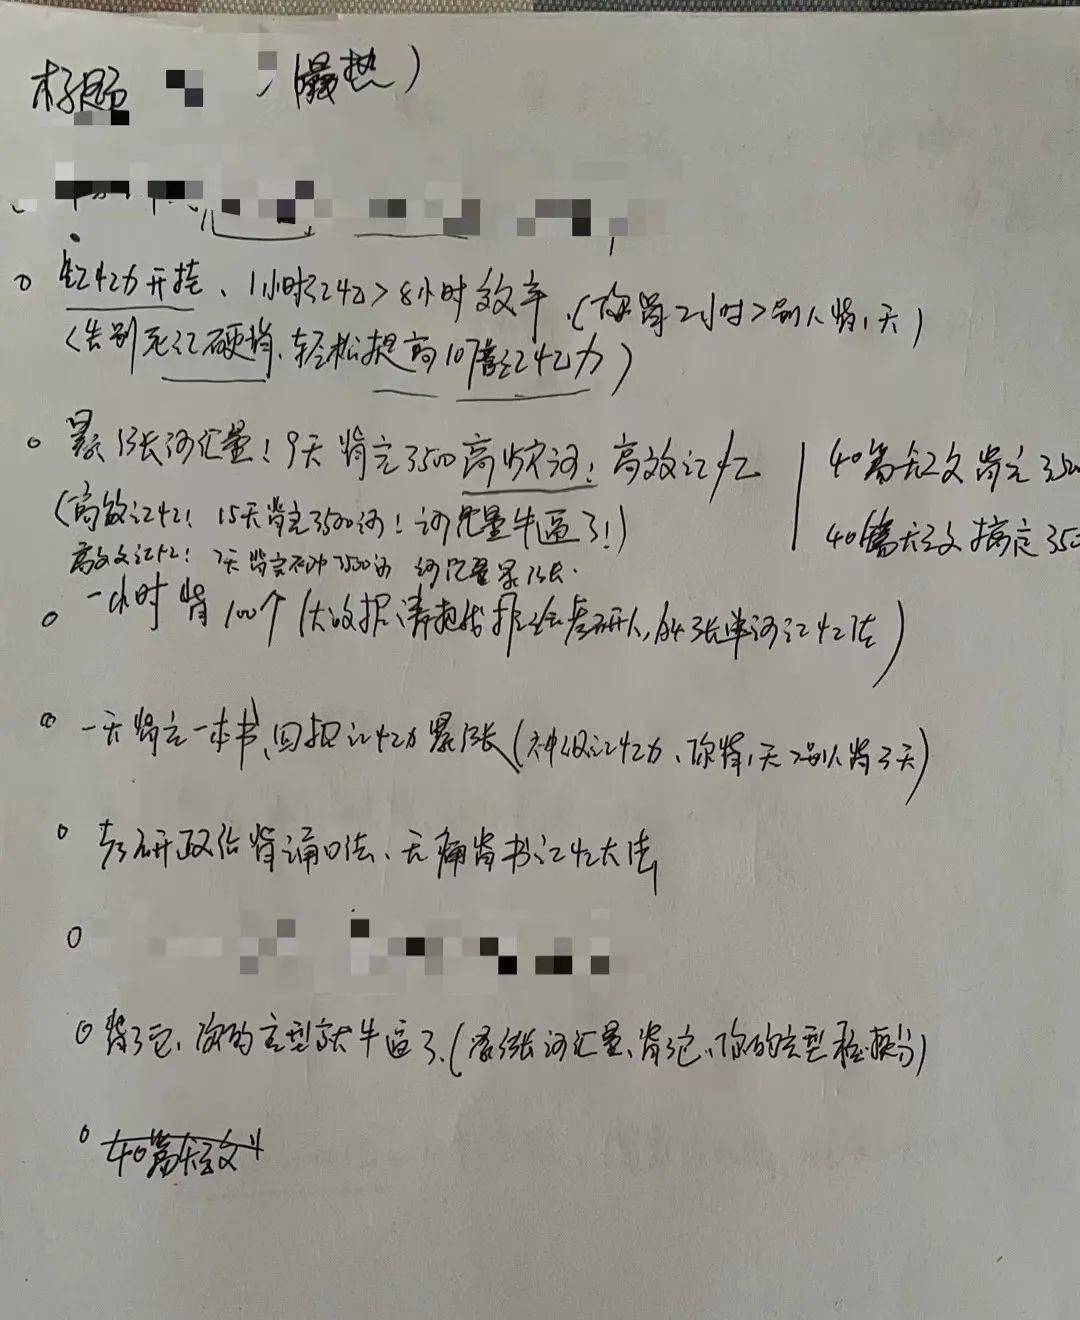 标题 (最热)
记忆力开挂、1小时记忆>8小时效率、(你背2小时>别人背1天)
(告别死记硬背、轻松提高10倍记忆力)
暴涨词汇量!9天背完3500高频词!高效记忆
40篇短文背完350
(高效记忆!15天背完3500词!词汇量牛逼了!)
40篇短文搞定350
高效记忆!7天背完 3500词 词汇量暴涨.
一小时背100个(大数据请把我推给考研人,
一天背完一本书、回报记忆力暴涨(神级记忆力、你背1天>别人背3天)
考研政治背诵口诀、无痛背书记忆大法
背了它、你的完型就牛逼了.(暴涨词汇量、背它、你的完型
40篇短文